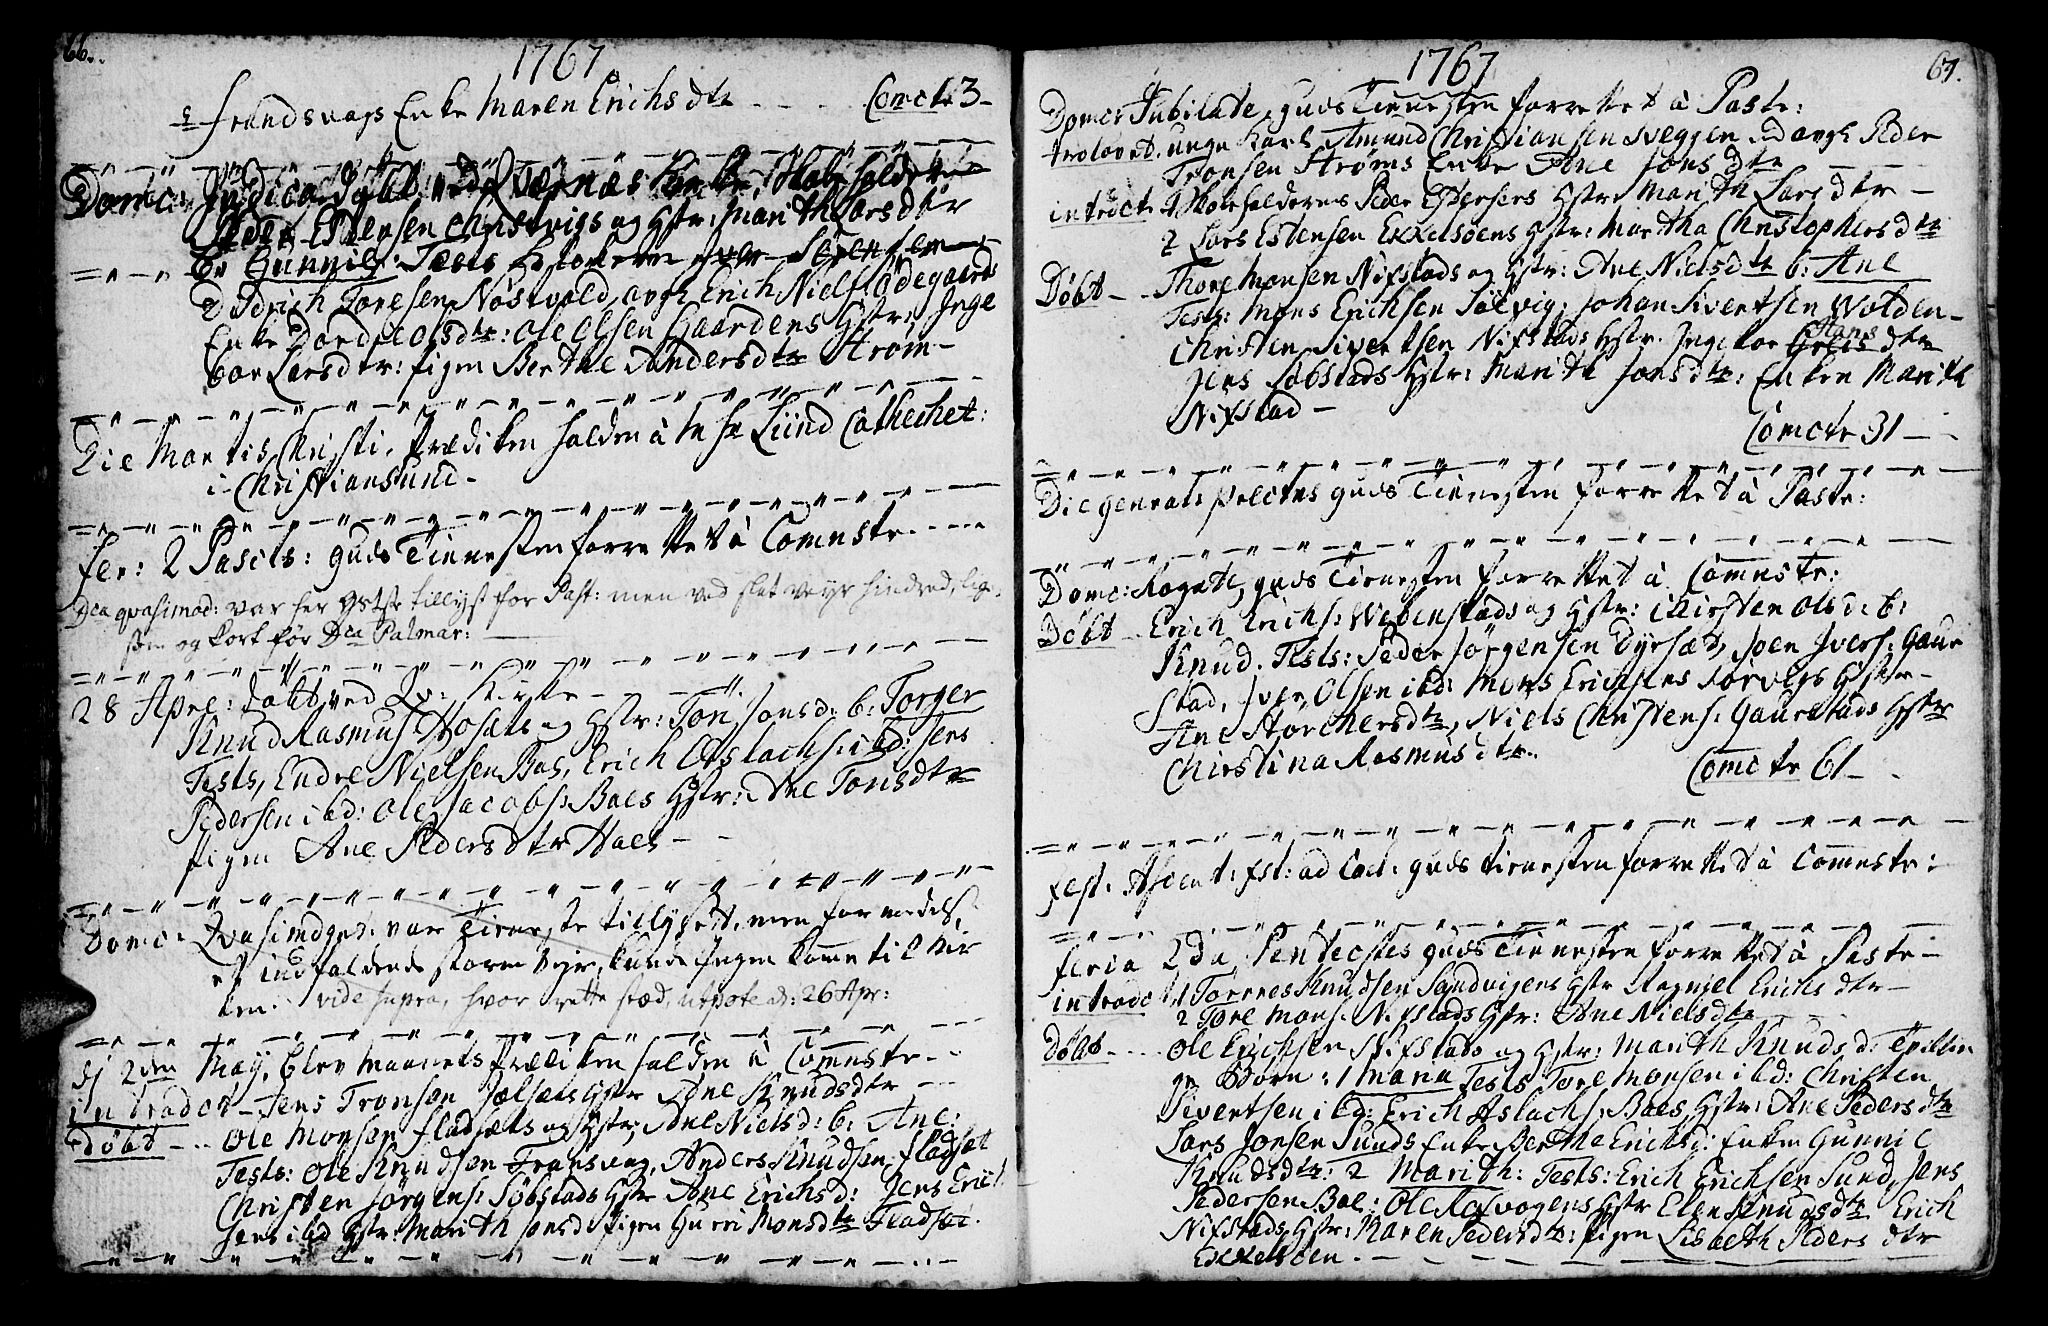 66.
1767
frandsvogs Enke Maren Erichsdtr - - - - Comcte 3 -
Domc: Judica, døbt ved Qværnæs Kirke, Skoleholderen
Peder Estensen Christvigs og Hstr: Marith Larsdtr
b: Gunnil: Tests: Sørensen
Didrich Toresen Nøstvold, avgl. Erich Niels: Ødegaards
Enke Dordie Olsdtr: Ole Olsen Gaardens Hstr: Inge
bor Larsdtr: Pigen Berthe Andersdtr Strøm -
Die Martis Christi, Prædiken holden à Mr Hr Lund Cathechet:
i Christiansund -
Fer: 2 Pascts: Guds Tienesten forrettet à Comnstr. - - -
Dca qvasimod: var her Gstste tillyst for Past: men ved slet Veyr hindred, lige
som og kort før Dca Palmar:
28 Apr: døbt ved Qv: Kirke - - -
Knud Rasmus: Hosets og Hstr: Tori Jonsd: b: Torger
Tests, Endre Nielsen Bas, Erich Aslachs: ibd: Jens
Pedersen ibd: Ole Jacobs: Baes Hstr: Ane Torisdtr
Pigen Ane Pedersdtr Haes -
Domc: Qvasimogen: var Tieneste tillyset, men formedelst
et indfaldende storm Veyr, kunde Ingen komme til Kir
ken. vide supra, hvor rette stæd, utpote d: 26 Apr:
dj 2den May, blev Maanets Prædiken holden à Comnstr - -
introdct - Jens Tronsen Jølsets Hstr Ane Knudsdtr -
døbt - - Ole Monsen Fladsets og Hstr, Ane Niels d: b: Ane:
Tests: Ole Knudsen Fransvog, Anders Knudsen Fladset
Christen Jørgens: Søbstads Hstr Ane Erichsd: Jens Erich
sens ibd Hstr: Marith Jonsd Pigen Gurri Monsdtr Fladset.
67.
1767
Domc: Jubilate, Guds Tienesten forrettet à Pastr:
trolovet. unge Karl Amund Christiansen Sveggen og avgl. Peder
Tronsen Strøms Enke Ane Jonsdtr
introdct 1 Skoleholderens Peder Estensens Hstr: Marith Larsdtr -
2 Lars Estensen Ekkelsøens Hstr: Martha Christophersdtr
Døbt - - Thore Monsen Nifstads og Hstr: Ane Nielsdtr b: Ane
Tests: Mons Erichsen Sølvig, Johan Sivertsen Volden -
Christen Sivertsen Nifstads Hstr. Ingebor Hans dtr
Jens Søbstads Hstr: Marith Jonsdtr: Enken Marith
Nifstad -
Comcte 31 - -
Die genrals precires Guds Tienesten forrettet à Pastr:
Domc: Rogate, Guds Tienesten forrettet à Comnstr:
Døbt - Erich Erichs: Webenstads og Hstr: Chirsten Olsd: b:
Knud. Tests: Peder Jørgensen Dyrsæt, Joen Ivers: Gaur
stad, Iver Olsen ibd: Mons Erichsens Sørvigs Hstr -
Ane Storchersdtr, Niels Christens: Gaurstads Hstr
Christina Rasmusdtr.
Comcte 61 - -
Fest: Ascent: Fst: ad Coel: Guds Tienesten forrettet à Comnstr:
Feria 2da Pentecstes Guds Tienesten forrettet à Pastr -
introdct 1 Torres Knudsen Sandvigens Hstr Ragnjel Erichsdtr -
2 Tore Mons: Nifstads Hstr: Ane Nielsdtr
Døbt - - - Ole Erichsen Skifstads og Hstr: Marith Knuds d: Tvillin
ge Børn: 1 Mana Tests Tore Monsen ibd: Christen
Sivertsen ibd: Erich Aslachs: Baes Hstr: Ane Pedersdtr
Lars Jonsen Sunds Enke Berthe Erichsd: Enken Gunnil
Knudsdtr: 2 Marith: Tests: Erich Erichsen Sund, Jens
Pedersen Bae: Ole Rafvogens Hstr Elen Knudsdtr Erich
Nifstads Hstr: Karen Pedersdtr: Pigen Lisbeth Peders dtr
Ekkelsøen. - - -